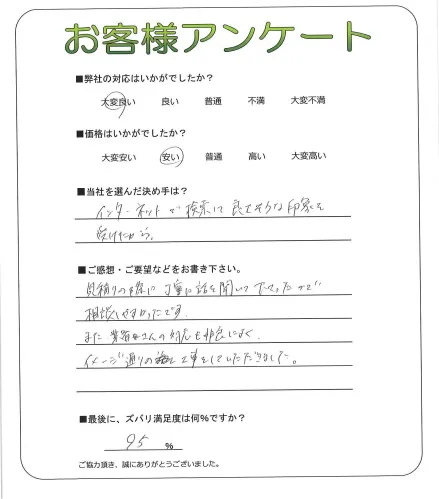 お客様アンケート
■弊社の対応はいかがでしたか?
大変良い 良い 普通 不満 大変不満
■価格はいかがでしたか?
大変安い 安い 普通 高い 大変高い
■当社を選んだ決め手は?
インターネットで検索して良さそうな印象を
受けたから。
■ご感想・ご要望などをお書き下さい。
見積りの際に丁寧に話を聞いて下さったので
相談しやすかったです。
また業者さんの対応も非常に良く、
イメージ通りの工事をしていただきました。
■最後に、ズバリ満足度は何%ですか?
95 %
ご協力頂き、誠にありがとうございました。